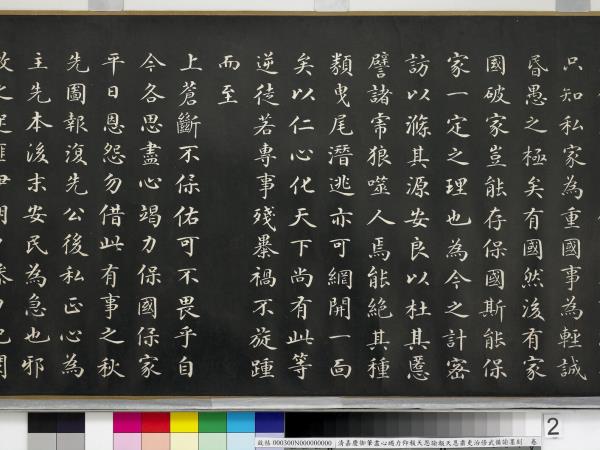 只知私家為重國事為輕誠
昬愚之極矣有國然後有家
國破家豈能存保國斯能保
家一定之理也為今之計密
訪以滌其源安良以杜其慝
譬諸霈狼噬人焉能絕其種
類曳尾潛逃亦可網開一面
矣以仁心化天下尚有此等
逆徒若專事殘暴禍不旋踵
而至
上蒼斷不保佑可不畏乎自
今各思盡心竭力保國保家
平日恩怨勿借此有事之秋
先圖報復先公後私正心為
主先本後末安民為急也邪
2
故帖 000300N000000000
清嘉慶御筆盡心竭力仰報天恩諭
卷